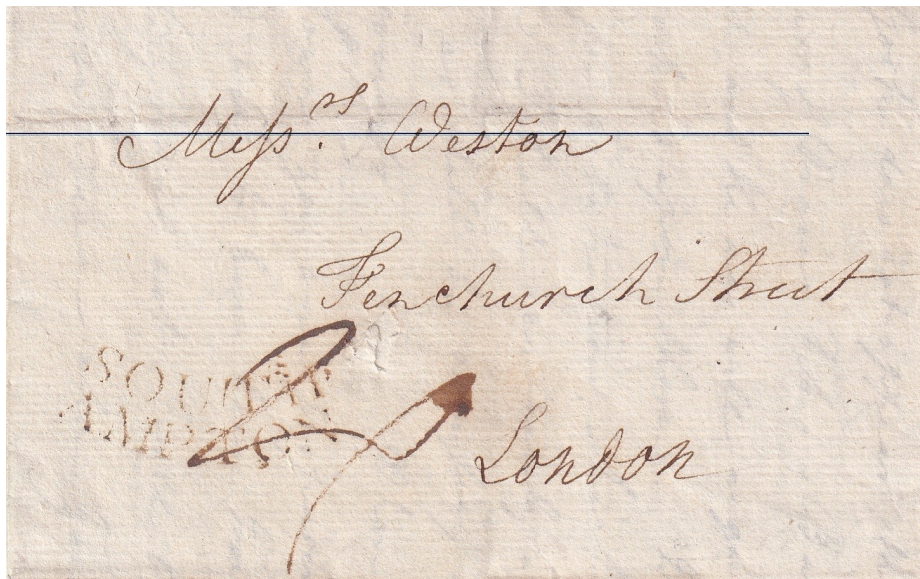 Mess.rs Weston
Fenchurch Street
SOUTH
AMPTON
London